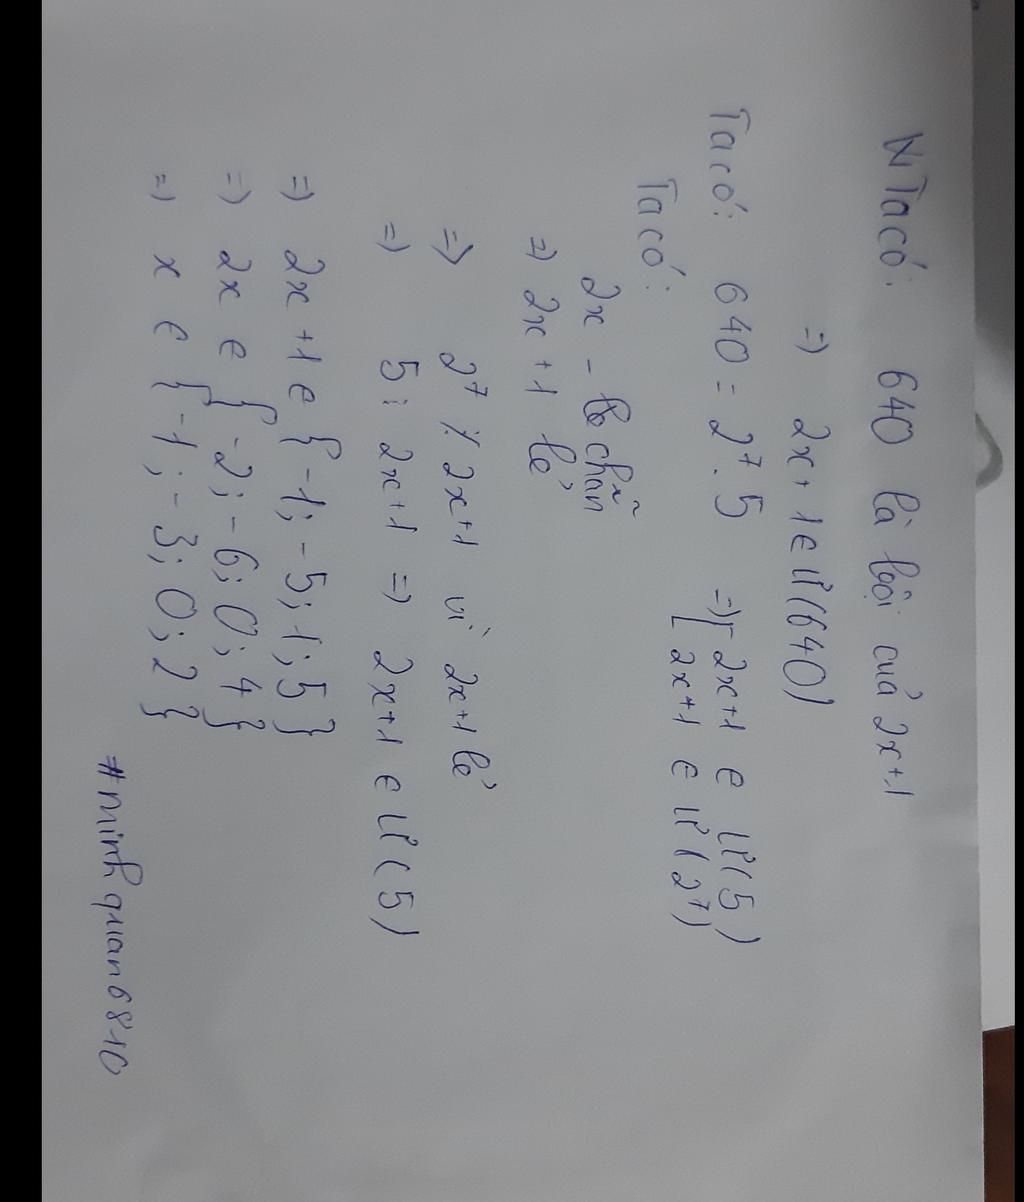 Ta có: 640 là bội của 2x+1
=> 2x+1 ∈ Ư(640)
Ta có: 640 = 2⁷.5 => [ 2x+1 ∈ Ư(5)
2x+1 ∈ Ư(2⁷)
Ta có:
2x - chẵn
=> 2x+1 lẻ
=> 2⁷ ⋮̸ 2x+1 vì 2x+1 lẻ
=> 5 ⋮ 2x+1 => 2x+1 ∈ Ư(5)
=> 2x+1 ∈ {-1; -5; 1; 5}
=> 2x ∈ {-2; -6; 0; 4}
=> x ∈ {-1; -3; 0; 2}
#minhquan6810